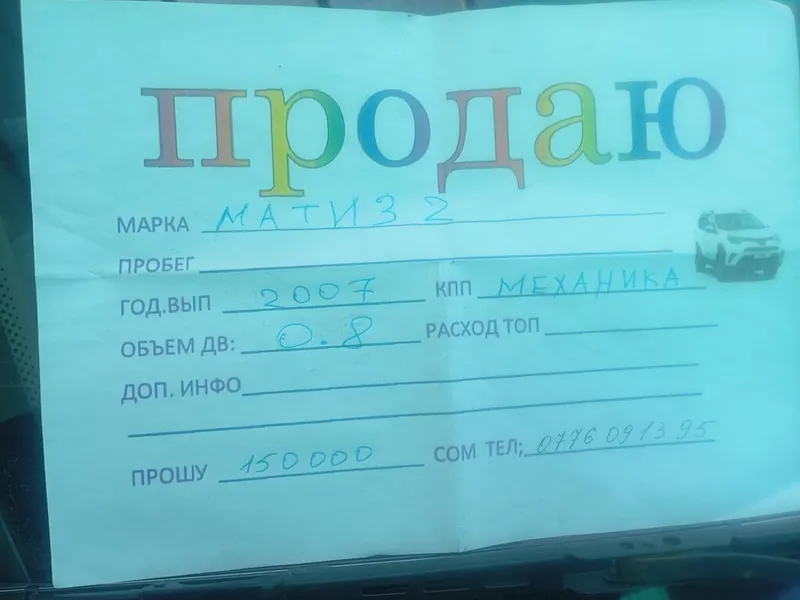 продаю
МАРКА МАТИЗ 2
ПРОБЕГ
ГОД.ВЫП 2007 КПП МЕХАНИКА
ОБЪЕМ ДВ: 0.8 РАСХОД ТОП
ДОП. ИНФО
ПРОШУ 150000 СОМ ТЕЛ; 0776 091395